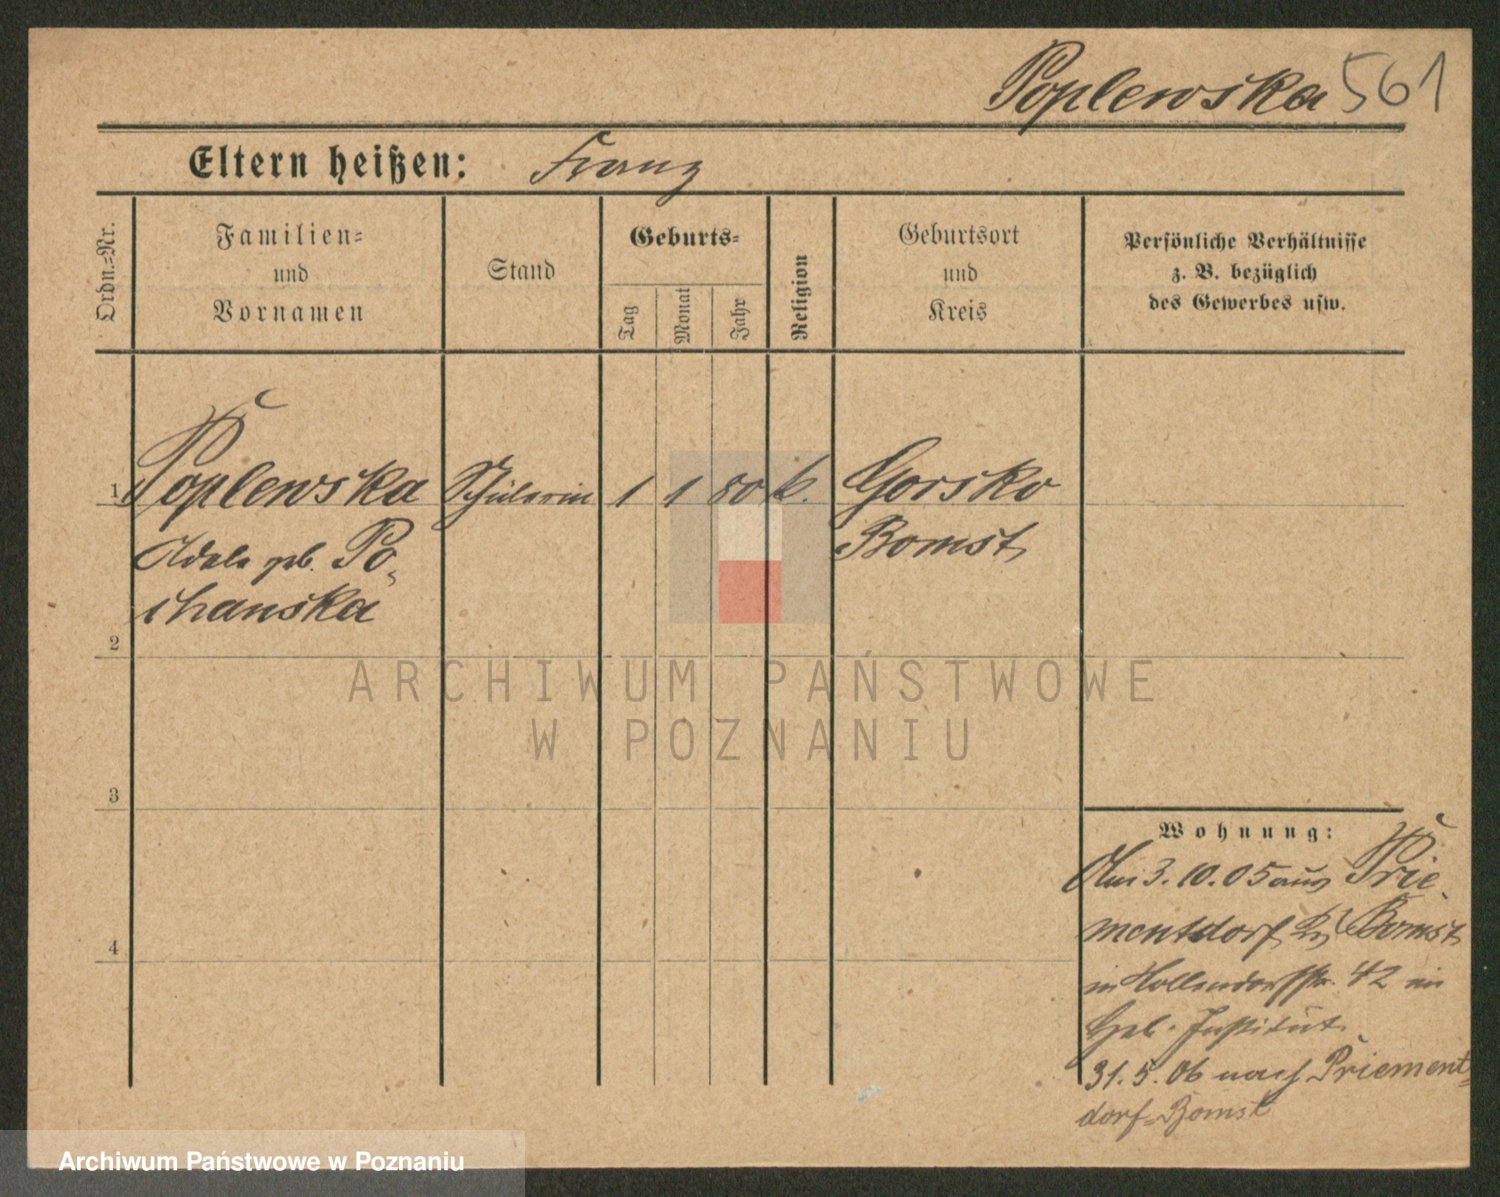 Poplewska 561
Eltern heißen: Franz
Ordn.=Nr.
Familien=
und
Vornamen
Stand
Geburts=
Tag
Monat
Jahr
Religion
Geburtsort
und
Kreis
Persönliche Verhältnisse
z. B. bezüglich
des Gewerbes usw.
1 Poplewska Schülerin 1 1 80 k. Gorsko
Adele geb. Po=
Bomst
chanska
2
3
4
ARCHIWUM PAŃSTWOWE
W POZNANIU
Wohnung:
Am 3.10.05 aus Prie
mentdorf, Bomst
in Hollendorffstr. 42 im
Geb. Institut.
31.5.06 nach Priement=
dorf=Bomst
Archiwum Państwowe w Poznaniu